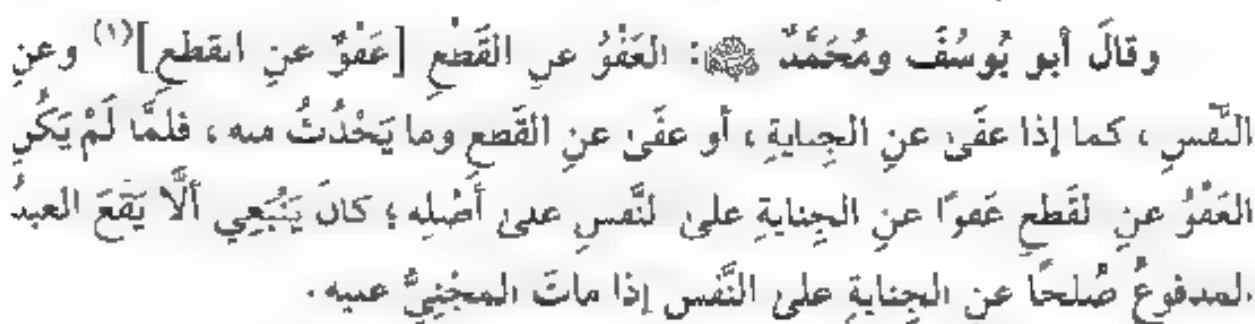 وقالَ أبو يُوسُفَ ومُحَمَّدٌ ﵀: العَفْوُ عنِ القَطْعِ [عَفْوٌ عنِ القطعِ](١) وعنِ
النَّفسِ، كما إذا عفَى عنِ الجِنايةِ، أو عفَى عنِ القَطعِ وما يَحْدُثُ منه، فلمَّا لَمْ يَكُنِ
العَفْوُ عنِ القَطعِ عَفوًا عنِ الجِنايةِ على النَّفسِ على أَصْلِه؛ كانَ يَنْبَغِي ألَّا يَقَعَ العبدُ
المدفوعُ صُلحًا عنِ الجِنايةِ على النَّفسِ إذا ماتَ المجْنِيُّ عليه.